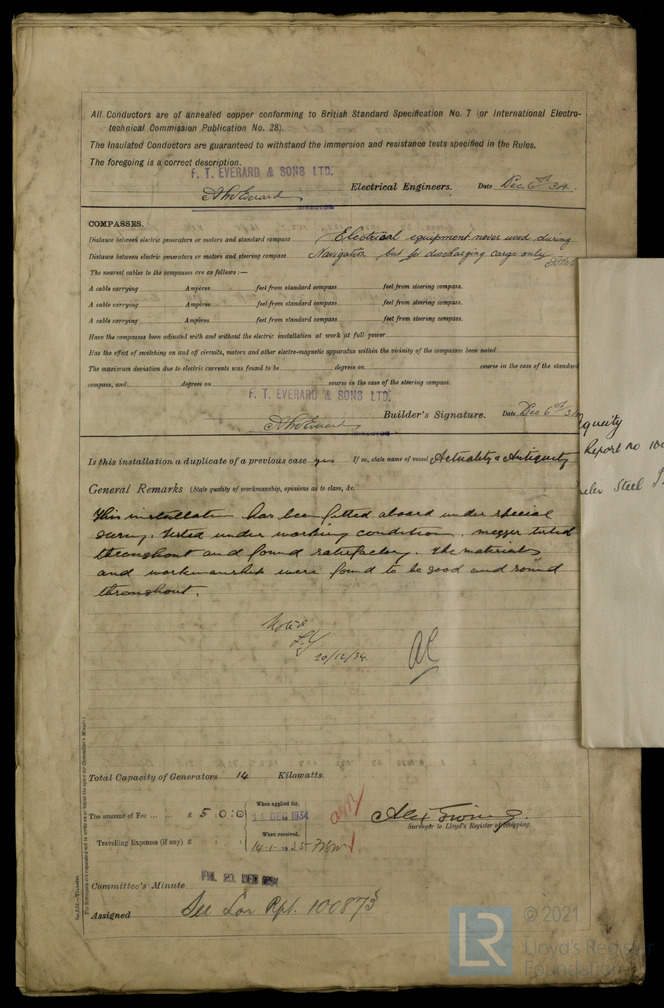 All Conductors are of annealed copper conforming to British Standard Specification No. 7 (or International Electro-
technical Commission Publication No. 28).
The Insulated Conductors are guaranteed to withstand the immersion and resistance tests specified in the Rules.
The foregoing is a correct description.
F. T. EVERARD & SONS LTD.
Everard Electrical Engineers. Date Dec 6th 34.
DIRECTOR
COMPASSES.
Distance between electric generators or motors and standard compass Electrical equipment never used during
Distance between electric generators or motors and steering compass Navigation but for discharging cargo only
The nearest cables to the compasses are as follows:—
A cable carrying Ampères feet from standard compass feet from steering compass.
A cable carrying Ampères feet from standard compass feet from steering compass.
A cable carrying Ampères feet from standard compass feet from steering compass.
Have the compasses been adjusted with and without the electric installation at work at full power
Has the effect of switching on and off circuits, motors and other electro-magnetic apparatus within the vicinity of the compasses been noted
The maximum deviation due to electric currents was found to be degrees on course in the case of the standard
compass, and degrees on course in the case of the steering compass.
F. T. EVERARD & SONS LTD.
Everard Builder's Signature. Date Dec 6th 34
DIRECTOR
quity
Report no 100
Steel S.
Is this installation a duplicate of a previous case yes If so, state name of vessel Actuality & Antiquity
General Remarks (State quality of workmanship, opinions as to class, &c.
This installation has been fitted aboard under special
survey, tested under working condition, megger tested
throughout and found satisfactory. The materials
and workmanship were found to be good and sound
throughout.
Noted
20/12/34.
Total Capacity of Generators 14 Kilowatts.
The amount of Fee ... ... £ 5 : 0 : 0 When applied for, DEC 1934
Alex Ewing.
Surveyor to Lloyd's Register of Shipping.
Travelling Expenses (if any) £ : : When received, 14.1.1935
Committee's Minute FRI. 21 DEC 1934
Assigned See Lon Rpt. 100873
© 2021
Lloyd's Register
Foundation